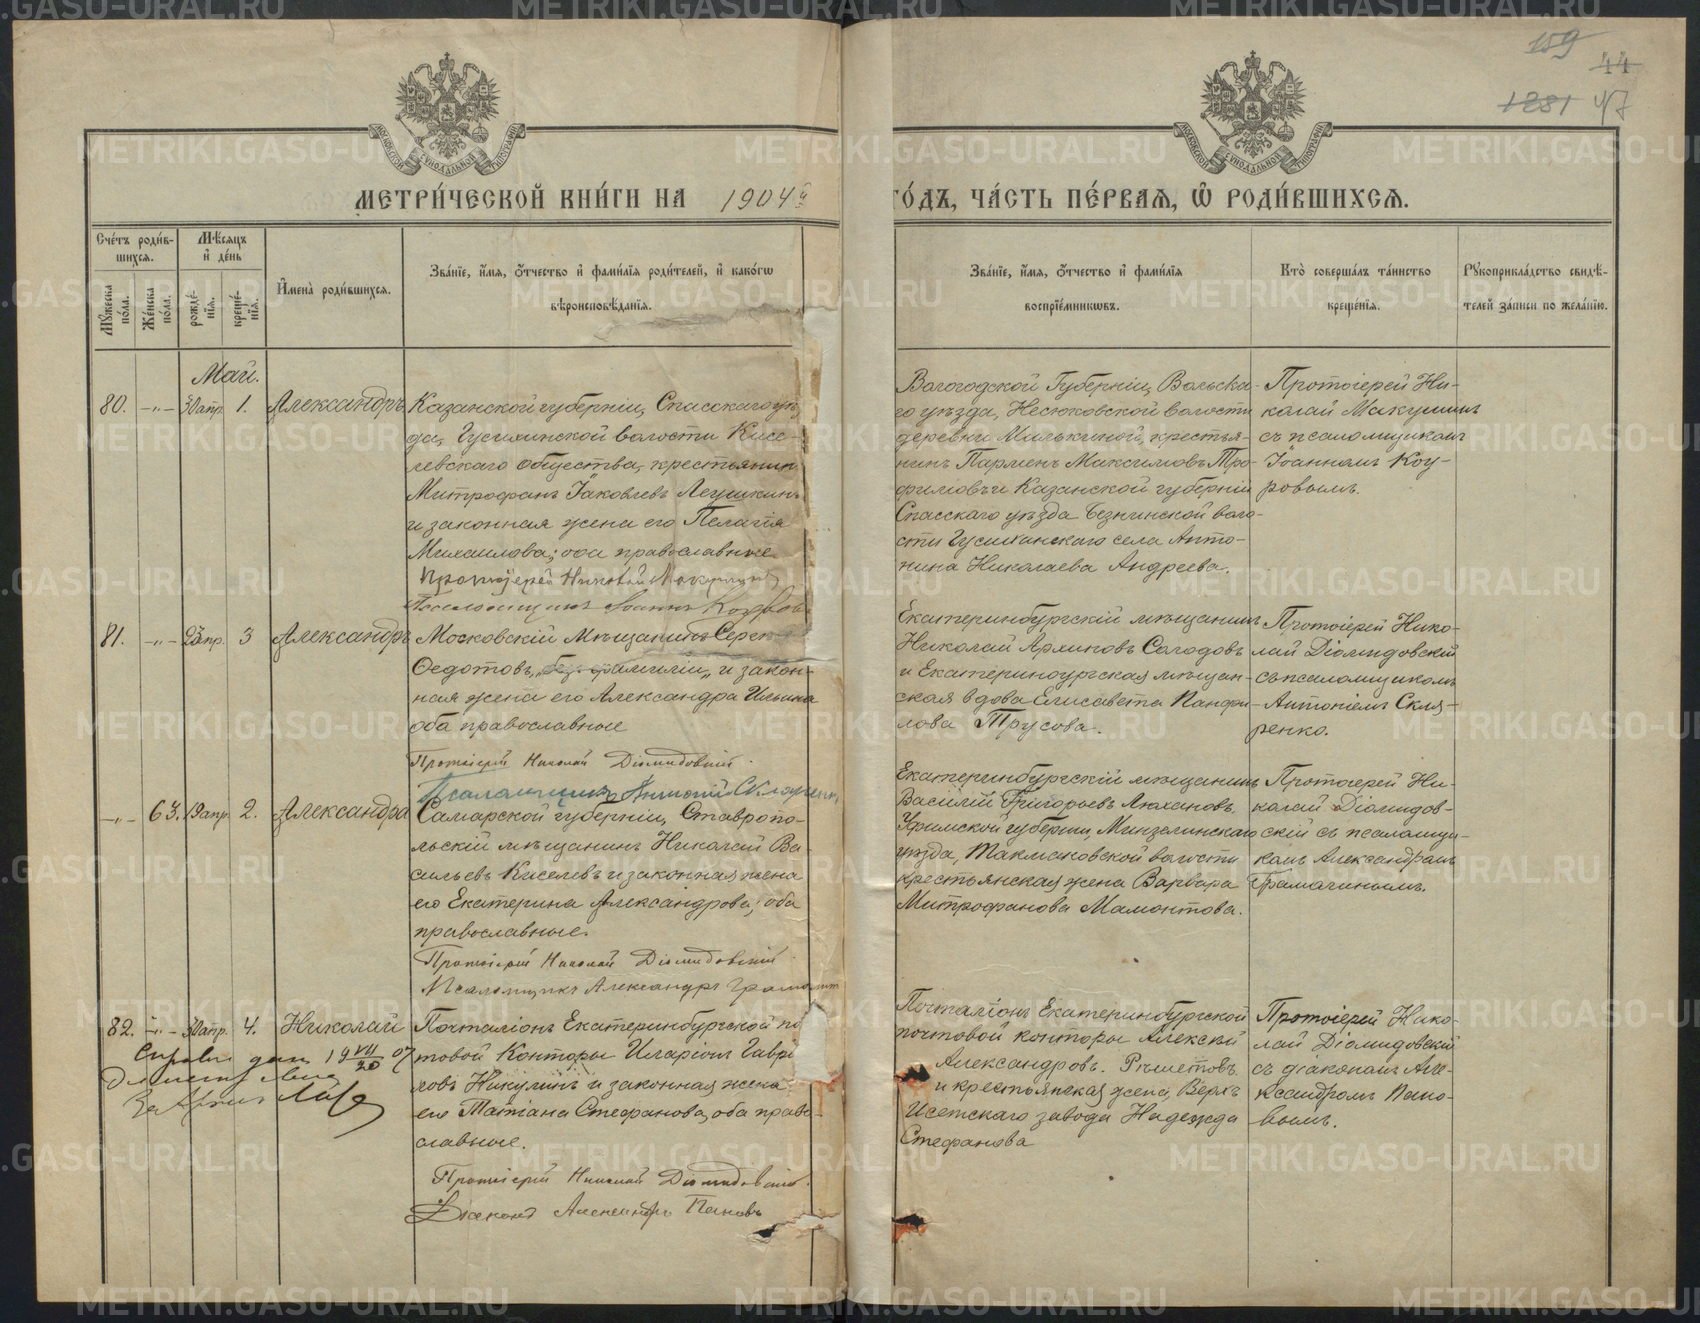 159
44
1281 47
МОСКОВСКОЙ СѴНОДАЛЬНОЙ ТИПОГРАФІИ
МОСКОВСКОЙ СѴНОДАЛЬНОЙ ТИПОГРАФІИ
МЕТРИ́ЧЕСКОЙ КНИ́ГИ НА 1904й
ГО́ДЪ, ЧА́СТЬ ПЕ́РВАѦ, Ѡ҆ РОДИ́ВШИХСѦ.
Сче́тъ роди́в-
шихся.
Мѣ́сяцъ
и҆ де́нь
Мꙋ́жеска по́ла.
Же́нска по́ла.
рожде́-
нїя.
креще́-
нїя.
И҆мена̀ роди́вшихся.
Зва́нїе, и҆́мя, ѻ҆́тчество и҆ фами́лїя роди́телей, и҆ како́гѡ
вѣроисповѣ́данїя.
Зва́нїе, и҆́мя, ѻ҆́тчество и҆ фами́лїя
воспрїе́мникѡвъ.
Кто̀ соверша́лъ та́инство
креще́нїя.
Рꙋкоприкла́дство свидѣ́-
телей за́писи по жела́нїю.
Май.
80. -"- 30апр. 1. Александръ
Казанской губерніи, Спасскаго уѣз
да, Гусихинской волости Кисе-
левскаго общества, крестьянинъ
Митрофанъ Іаковлевъ Легушкинъ
и законная жена его Пелагія
Михаилова; оба православные
Протоіерей Николай Макушинъ
Псаломщикъ Іоаннъ Коуровъ
Вологодской Губерніи, Вольска-
го уѣзда, Несюковской волости
деревни Милькиной, крестья-
нинъ Парменъ Максимовъ Тро-
фимовъ и Казанской губерніи
Спасскаго уѣзда Безнинской воло-
сти Гусиханскаго села Анто-
нина Николаева Андреева.
Протоіерей Ни-
колай Макушинъ
съ псаломщикомъ
Іоанномъ Коу-
ровымъ.
81. -"- 23апр. 3 Александръ
Московскій Мѣщанинъ Серги
Ѳедотовъ, „безъ фамиліи„ и закон-
ная жена его Александра Ильина
оба православные
Протоіерей Николай Діомидовскій.
Псаломщикъ Антоній Скляренко
Екатеринбургскій мѣщанинъ
Николай Архиповъ Солодовъ
и Екатеринбургская мѣщан-
ская вдова Елисавета Панфи-
лова Трусова.
Протоіерей Нико-
лай Діомидовскій
съ псаломщикомъ
Антоніемъ Скля-
ренко.
-"- 63. 19апр. 2. Александра
Самарской губерніи, Ставропо-
льскій мѣщанинъ Николай Ва-
сильевъ Киселевъ и законная жена
его Екатерина Александрова; оба
православные.
Протоіерей Николай Діомидовскій.
Псаломщикъ Александръ Грамачин
Екатеринбургскій мѣщанинъ
Василій Григорьевъ Люхановъ.
Уфимской губерніи, Минзелинскаго
уѣзда, Такмаковской волости
крестьянская жена Варвара
Митрофанова Мамонтова.
Протоіерей Ни-
колай Діомидов-
скій съ псаломщи-
комъ Александромъ
Грамачинымъ.
82. -"- 30апр. 4. Николай
07
Почталіонъ Екатеринбургской по
товой Конторы Иларіонъ Гаври
ловъ Никулинъ и законная жена
его Татіана Стефанова, оба право-
славные.
Протоіерей Николай Діомидовскій.
Діаконъ Александръ Пановъ
Почталіонъ Екатеринбургской
почтовой конторы Алексѣй
Александровъ. Рѣшетовъ.
и крестьянская жена, Верхъ
Исетскаго завода Надежда
Стефанова
Протоіерей Нико-
лай Діомидовскій
съ діакономъ Але-
ксандромъ Пано-
вымъ.